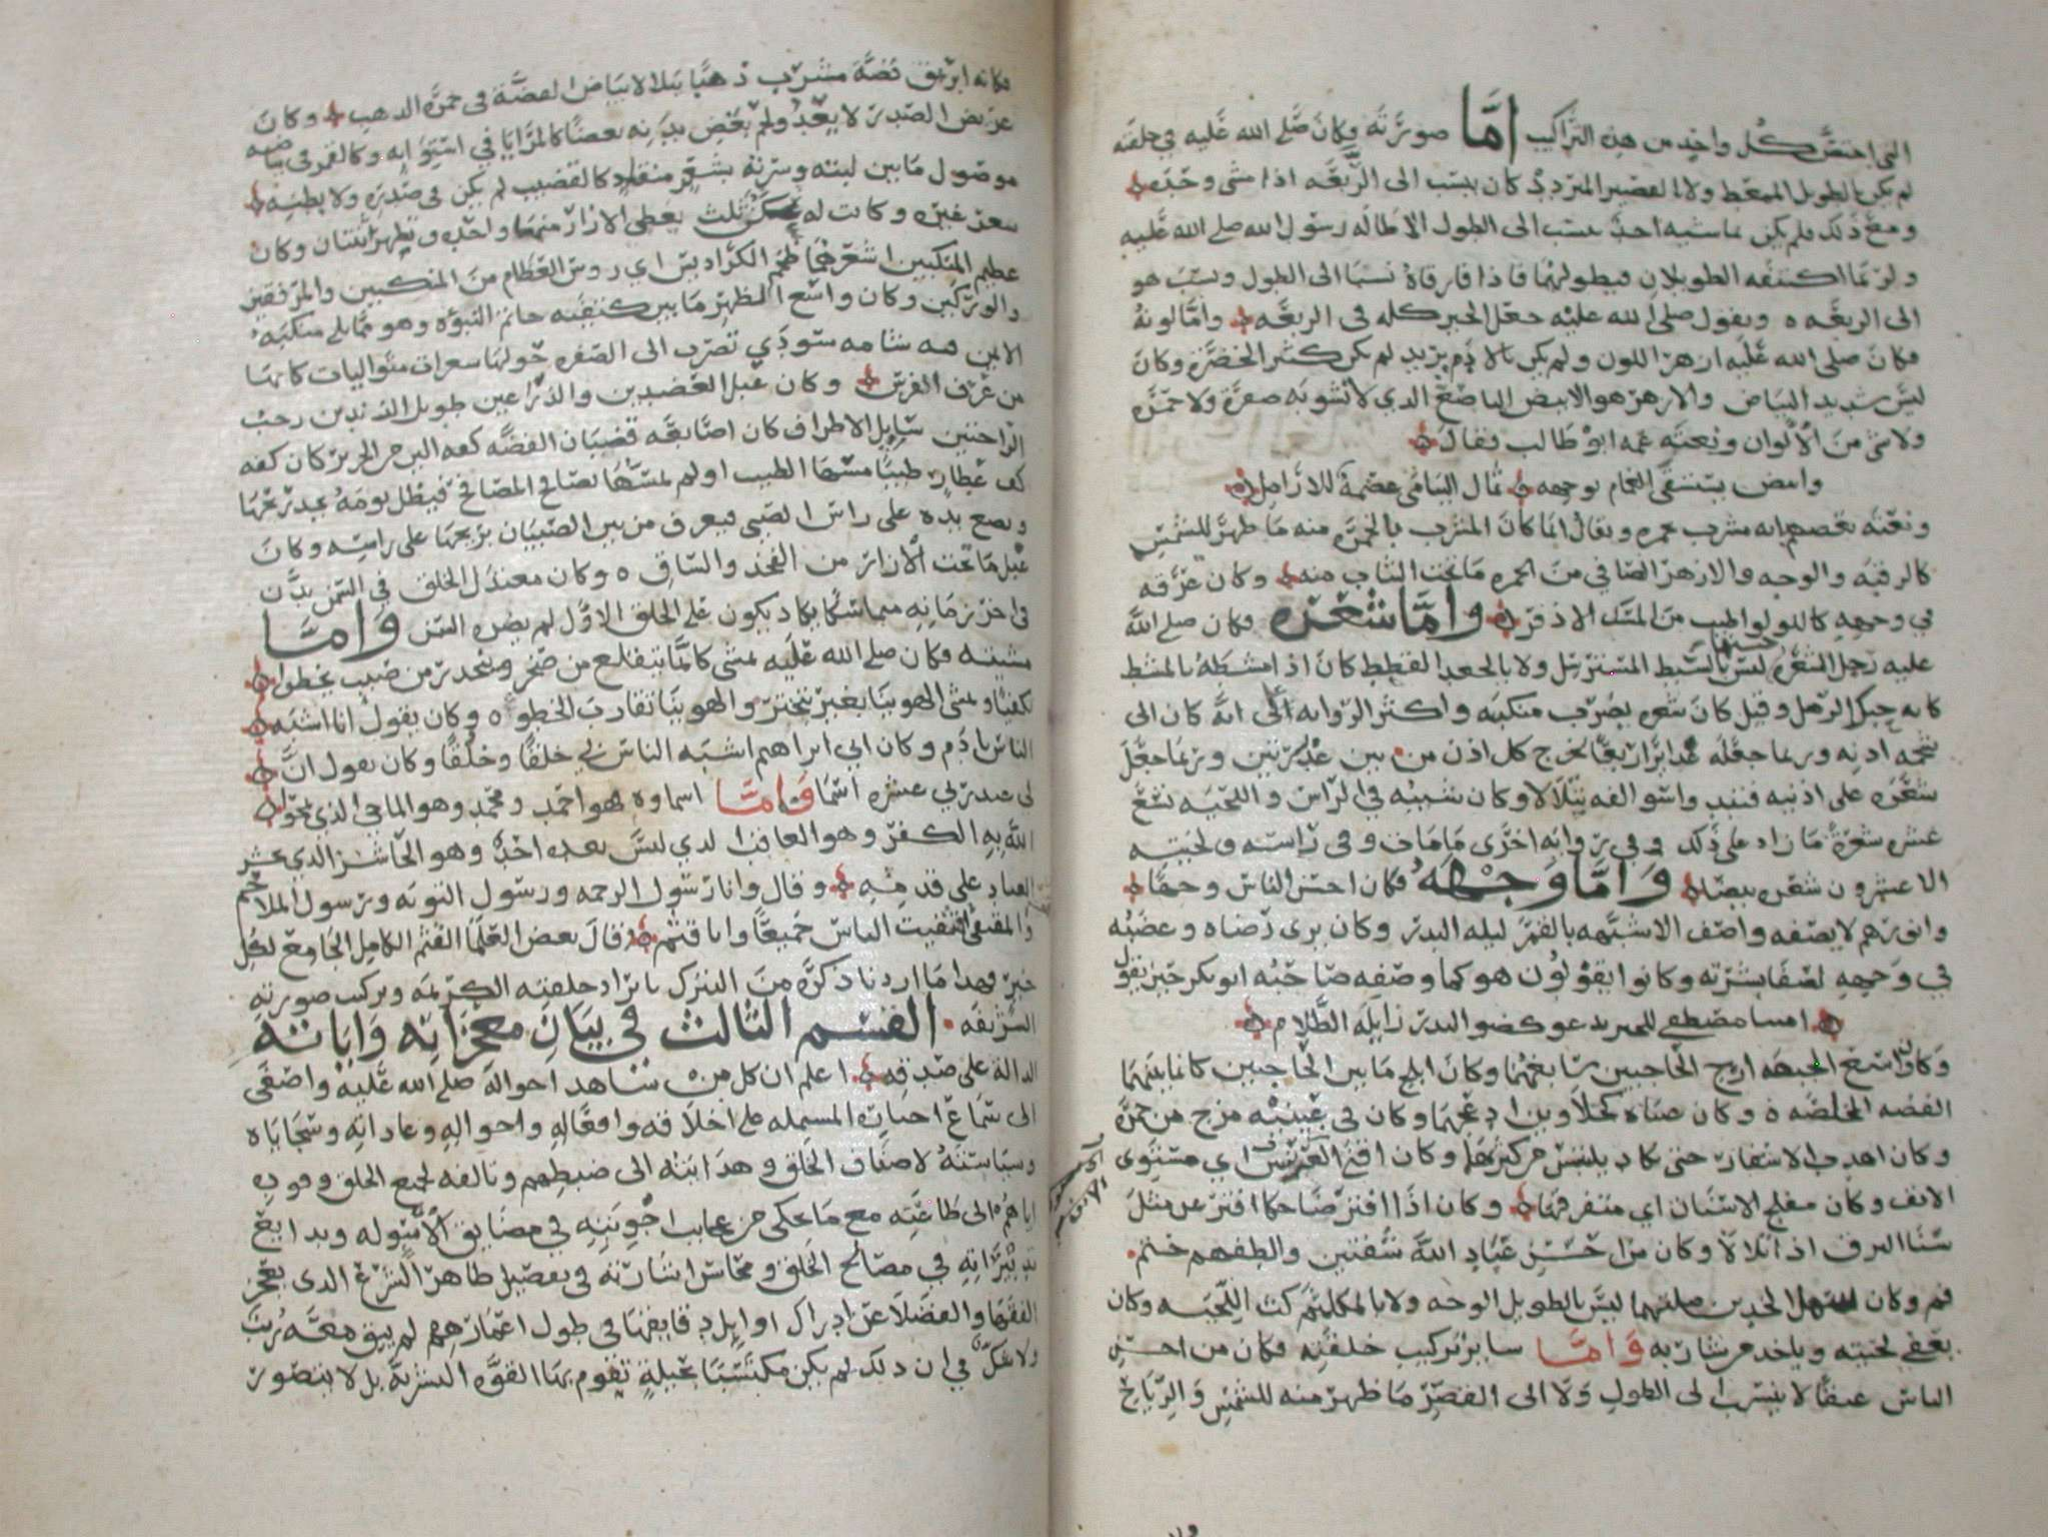 التي اختص كل واحد من هذه التراكيب اما صورته وكان صلى الله عليه في خلقه
لم يكن بالطويل الممغط ولا القصير المتردد كان ينسب الى الربعه اذا مشى وحده
ومع ذلك فلم يكن يماشيه احد ينسب الى الطول الا طاله رسول الله صلى الله عليه
ولربما اكتنفه الطويلان فيطولهما فاذا فارقاه نسبا الى الطول ونسب هو
الى الربعه ويقول صلى الله عليه جعل الخير كله في الربعه واما لونه
فكان صلى الله عليه ازهر اللون ولم يكن بالادم يريد لم يكن كثير الخضرة وكان
ليس شديد البياض والازهر هو الابيض الناصع الذي لا تشوبه صفرة ولا حمرة
ولا شي من الالوان ونعته عمه ابو طالب فقال
وابيض يستسقى الغمام بوجهه ثمال اليتامى عصمة للارامل
ونعته بعضهم انه مشرب حمره ويقال انما كان المشرب بالحمره منه ما ظهر للشمس
كالرقبه والوجه والازهر الصافي من الحمره ما تحت الثياب منه وكان عرقه
في وجهه كاللولو اطيب من المسك الاذفر واما شعره فكان صلى الله
عليه رجل الشعره حسنها ليس بالسبط المسترسل ولا بالجعد القطط كان اذا مشطه بالمشط
كانه حبك الرمل وقيل كان شعره يضرب منكبيه واكثر الروايه انه كان الى
شحمه اذنه وربما جعله غدايرا اربعا يخرج كل اذن من بين غديرتين وربما جعل
شعره على اذنيه فتبد واسوالفه يتلالا وكان شيبه في الراس واللحيه سبع
عشره شعرة ما زاد على ذلك وفي روايه اخرى ما مات وفي راسه ولحيته
الا عشرون شعره بيضا واما وجهه فكان احسن الناس وجها
وانورهم لا يصفه واصف الا شبهه بالقمر ليله البدر وكان يرى رضاه وغضبه
في وجهه لصفا بشرته وكانوا يقولون هو كما وصفه صاحبه ابو بكر حين يقول
امينا مصطفى للخير يدعو كضو البدر زايله الظلام
وكان واسع الجبهه ازج الحاجبين سابغهما وكان ابلج ما بين الحاجبين كانما بينهما
الفضه المخلصه وكان عيناه نجلاوين ادعجهما وكان في عينيه مزج من حمرة
وكان اهدب الاشفار حتى تكاد يلتبس من كثرتها وكان اقنى العرنين اي مستوي
الانف وكان مفلج الاسنان اي متفرقها وكان اذا افتر ضاحكا افتر عن مثل
سنا البرق اذا تلالا وكان من احسن عباد الله شفتين والطفهم ختم
فم وكان سهل الخدين صلتهما ليس بالطويل الوجه ولا بالمكلثم كث اللحيه وكان
يعفي لحيته وياخذ من شاربه واما ساير تركيب خلقته فكان من احسن
الناس عنقا لا ينسب الى الطول ولا الى القصر ما ظهر منه للشمس والرياح
فكانه ابريق فضة مشرب ذهبا يتلالا بياض الفضة في حمرة الذهب وكان
عريض الصدر لا يعد ولم بعض بدنه بعضا كالمرايا في استوايه وكالقمر في بياضه
موصول ما بين لبته وسرته بشعر منقاد كالقضيب لم يكن في صدره ولا بطنه
شعر غيره وكانت له عكن ثلث يغطي الازار منها واحده وتظهر اثنتان وكان
عظيم المنكبين اشعرهما ضخم الكراديس اي روس العظام من المنكبين والمرفقين
والوركين وكان واسع الظهر ما بين كتفيه خاتم النبوه وهو مما يلي منكبه
الايمن فيه شامه سوداء تضرب الى الصفره حولها شعرات متواليات كانها
من عرف الفرس وكان عبل العضدين والذراعين طويل الزندين رحب
الراحتين سايل الاطراف كان اصابعه قضبان الفضه كفه الين من الحرير كان كفه
كف عطار طيبا مسها الطيب او لم يمسها يصافح المصافح فيظل يومه يجد ريحها
ويضع يده على راس الصبي فيعرف من بين الصبيان بريحها على راسه وكان
عبل ما تحت الازار من الفخذ والساق وكان معتدل الخلق في السمن بدن
في اخر زمانه متماسكا يكاد يكون على الخلق الاول لم يضره السن واما
مشيته فكان صلى الله عليه يمشي كانما يتقلع من صخر وينحدر من صبب يخطوا
تكفيا ويمشي الهوينا بغير تبختر والهوينا تقارب الخطو وكان يقول انا اشبه
الناس بادم وكان ابي ابراهيم اشبه الناس بي خلقا وخلقا وكان يقول ان
لي عند ربي عشره اسما واما اسماوه فهو احمد ومحمد وهو الماحي الذي يمحو
الله به الكفر وهو العاقب الذي ليس بعده احد وهو الحاشر الذي يحشر
العباد على قدميه وقال وانا رسول الرحمه ورسول التوبه ورسول الملاحم
والمقفي قفيت الناس جميعا وانا قثم قال بعض العلما القثم الكامل الجامع لكل
خير فهذا ما اردنا ذكره من التبرك بايراد خلقته الكريمه وتركيب صورته
الشريفه القسم الثالث في بيان معجزاته واياته
الدالة على صدقه اعلم ان كل من شاهد احواله صلى الله عليه واصغى
الى سماع اخباره المشتمله على اخلاقه وافعاله واحواله وعاداته وسجاياه
وسياسته لاصناف الخلق وهدايته الى ضبطهم وتالفه لجميع الخلق وقوده
اياهم الى طاعته مع ما يحكى من عجايب اجوبته في مضايق الاسوله وبدايع
تدبيراته في مصالح الخلق ومحاسن اشاراته في تفصيل ظاهر الشرع الذي يعجز
الفقها والفضلا عن ادراك اوايل دقايقها في طول اعمارهم لم يبق معه ريب
ولا شك في ان ذلك لم يكن مكتسبا بحيلة تقوم بها القوه البشرية بل لا يتصور